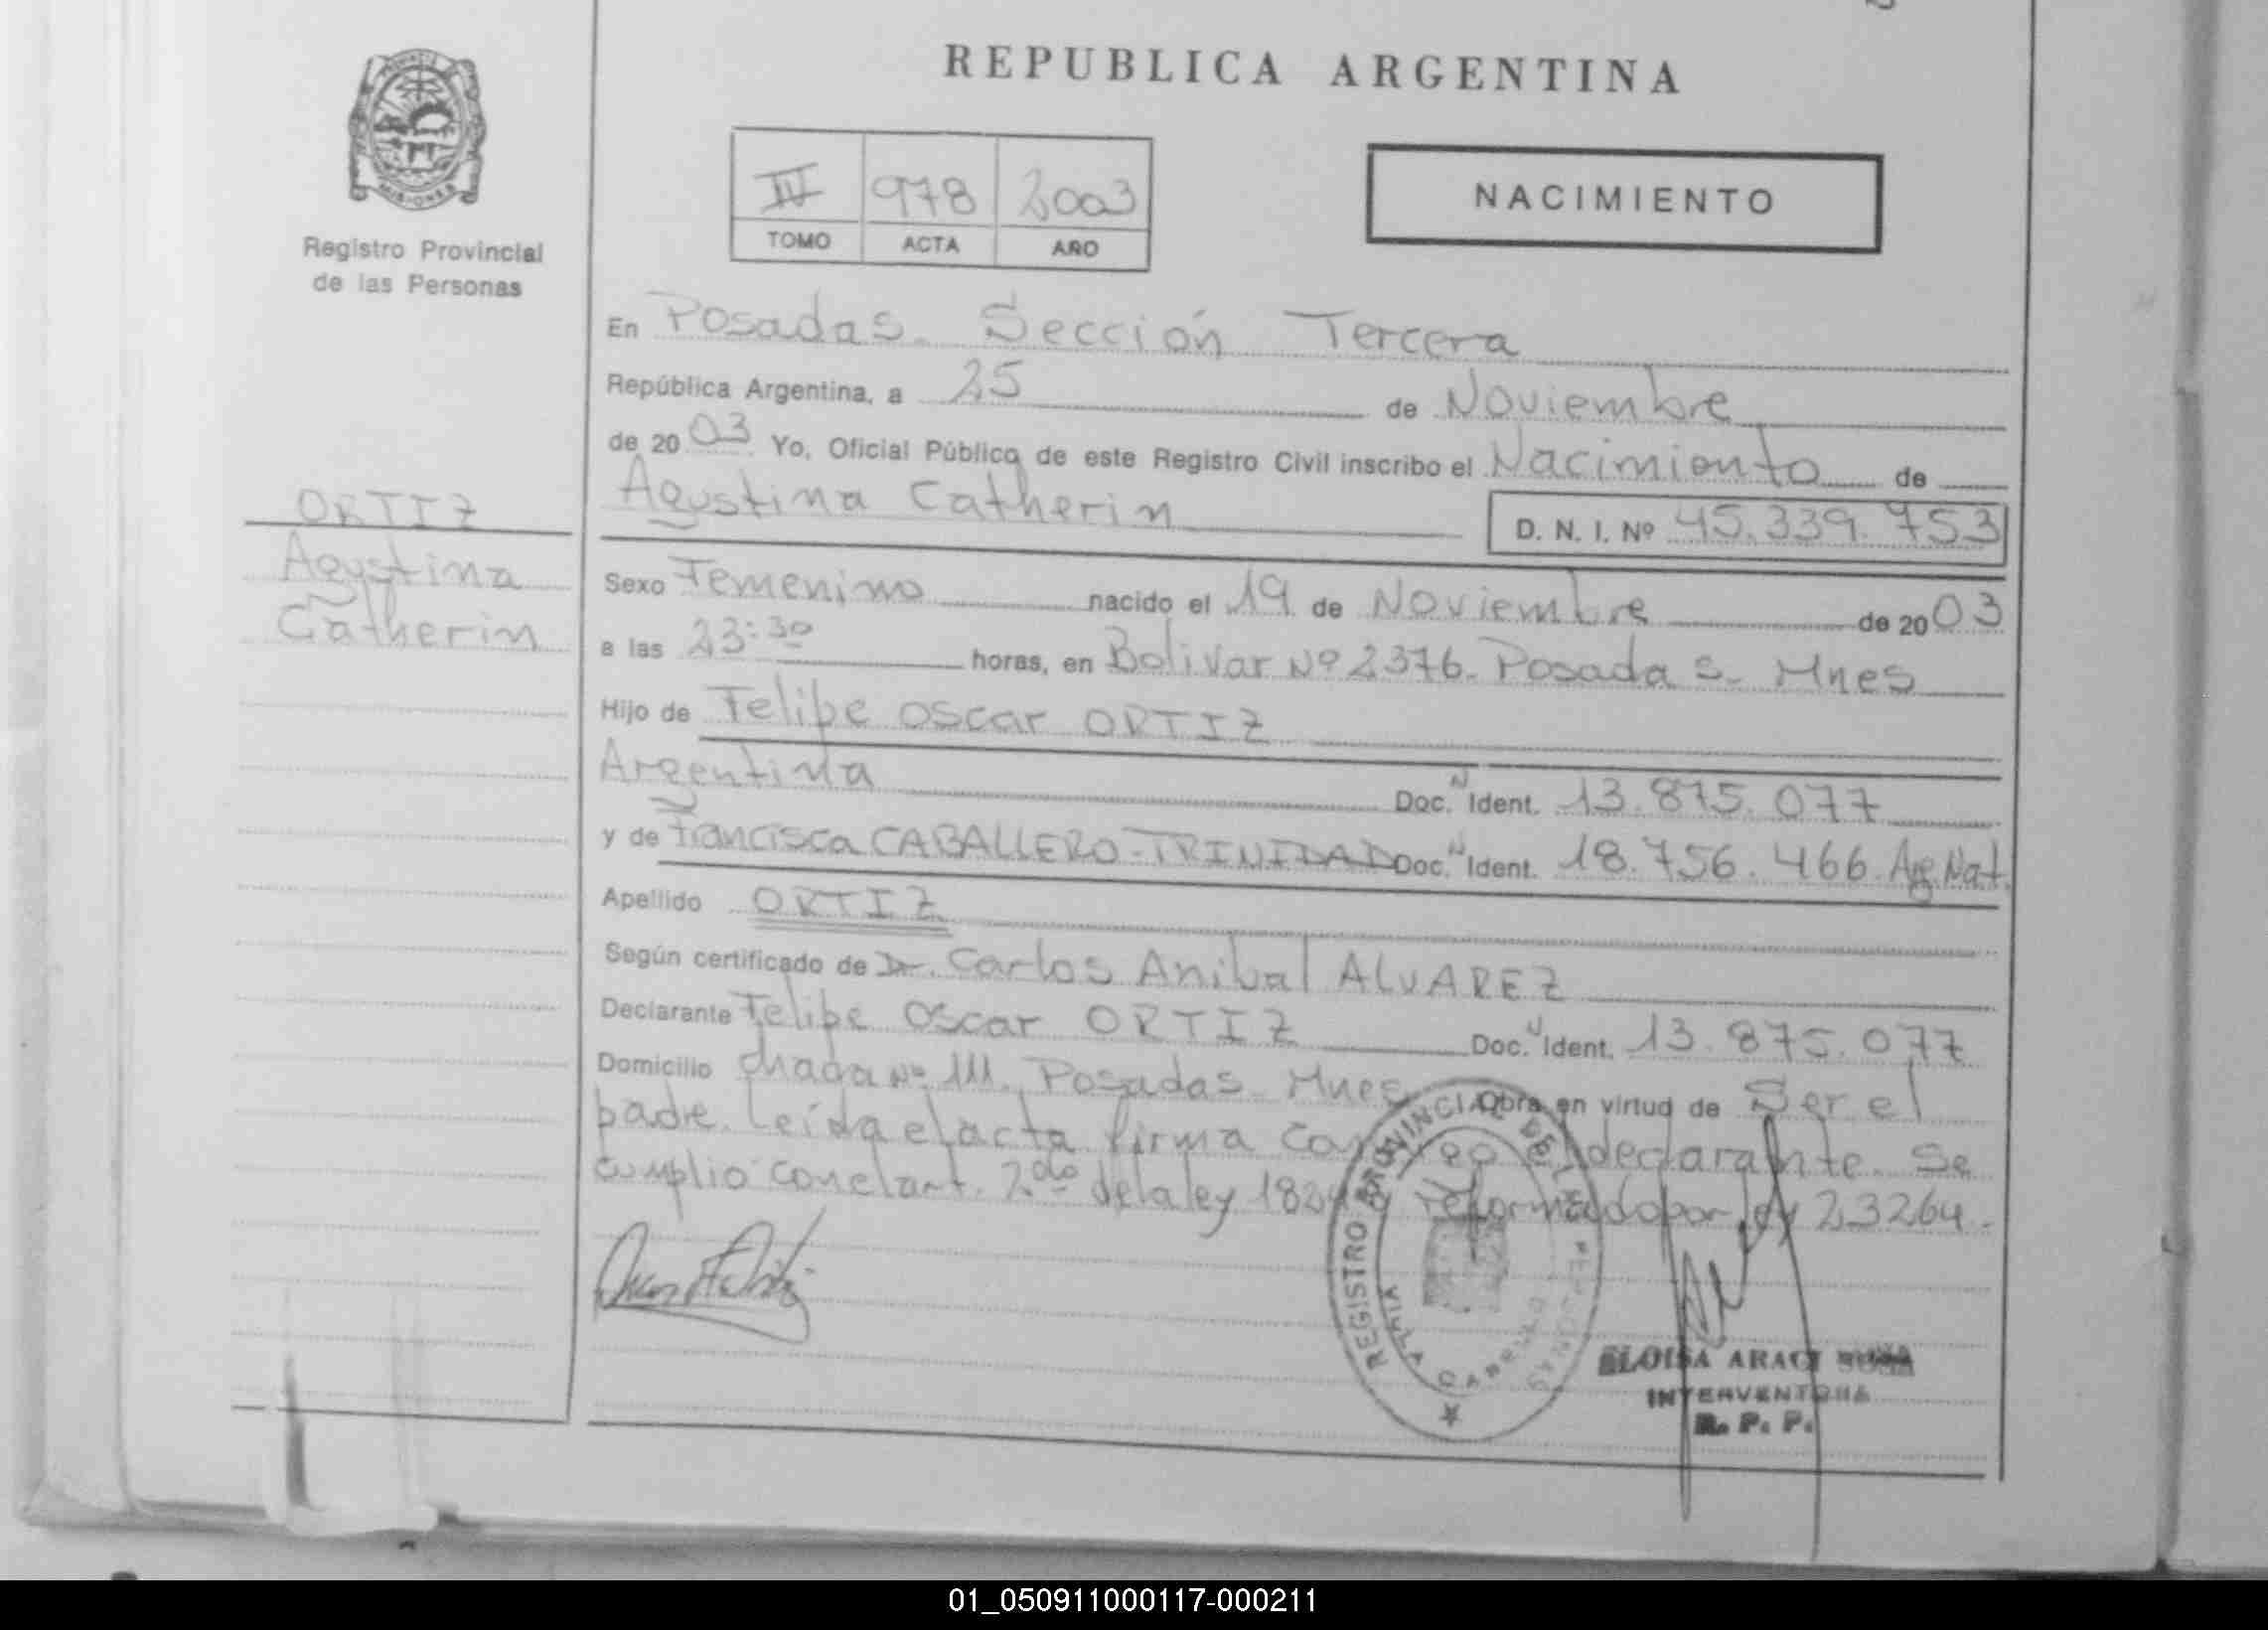 REPUBLICA ARGENTINA
MISIONES
Registro Provincial
de las Personas
978 2003
TOMO ACTA AÑO
NACIMIENTO
En Posadas. Sección Tercera
República Argentina, a 25 de Noviembre
de 20 03 Yo, Oficial Público de este Registro Civil inscribo el Nacimiento de
Agustina Catherin
D. N. I. Nº 45.339.753
ORTIZ
Agustina
Catherin
Sexo Femenino nacido el 19 de Noviembre de 20 03
a las 23:30 horas, en Bolivar Nº 2376. Posadas. Mnes
Hijo de Felipe Oscar ORTIZ
Argentina Doc. N Ident. 13.875.077
y de Francisca CABALLERO-TRINIDAD Doc. N Ident. 18.756.466 Arg. Nat.
Apellido ORTIZ
Según certificado de Dr. Carlos Anibal ALVAREZ
Declarante Felipe Oscar ORTIZ Doc. N Ident. 13.875.077
Domicilio Chacra Nº 111. Posadas. Mnes Obra en virtud de Ser el
padre. Leída el acta firma conmigo el declarante. Se
cumplio con el art. 2do de la ley reformado por ley 23264.
REGISTRO PROVINCIAL DE LAS
ELOISA ARACI
INTERVENTORA
R. P. P.
01_050911000117-000211